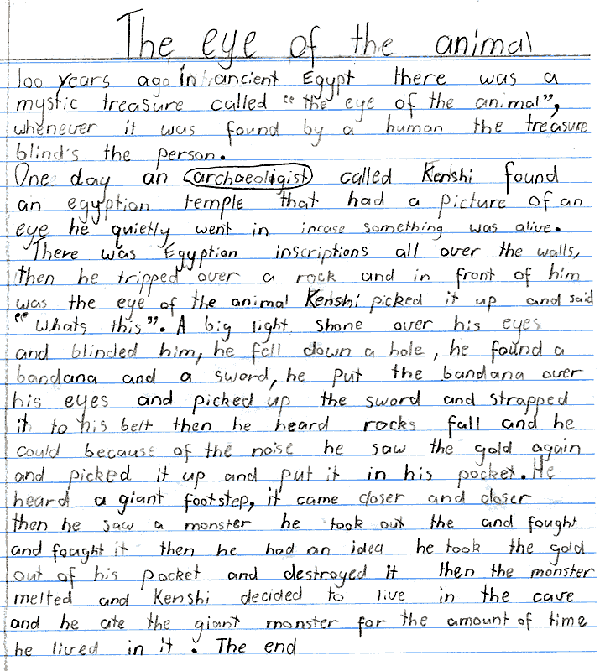 The eye of the animal
100 years ago in ancient Egypt there was a
mystic treasure called "the eye of the animal",
whenever it was found by a human the treasure
blind's the person.
One day an archaeologist called Kenshi found
an egyption temple that had a picture of an
eye he quietly went in incase something was alive.
There was Egyption inscriptions all over the walls,
then he tripped over a rock and in front of him
was the eye of the animal Kenshi picked it up and said
"whats this". A big light shone over his eyes
and blinded him, he fell down a hole, he found a
bandana and a sword, he put the bandana over
his eyes and picked up the sword and strapped
it to his belt then he heard rocks fall and he
could because of the noise he saw the gold again
and picked it up and put it in his pocket. He
heard a giant footstep, it came closer and closer
then he saw a monster he took out the and fought
and fought it then he had an idea he took the gold
out of his pocket and destroyed it then the monster
melted and Kenshi decided to live in the cave
and he ate the giant monster for the amount of time
he lived in it. The end